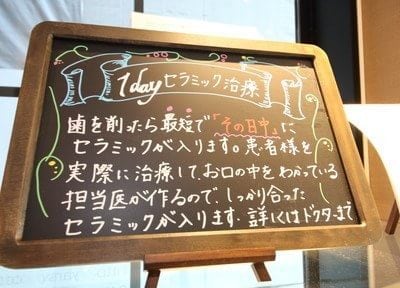 1dayセラミック治療
歯を削ったら最短で『その日中』に
セラミックが入ります。患者様を
実際に治療して、お口の中をわかっている
担当医が作るので、しっかり合った
セラミックが入ります。詳しくはドクターまで